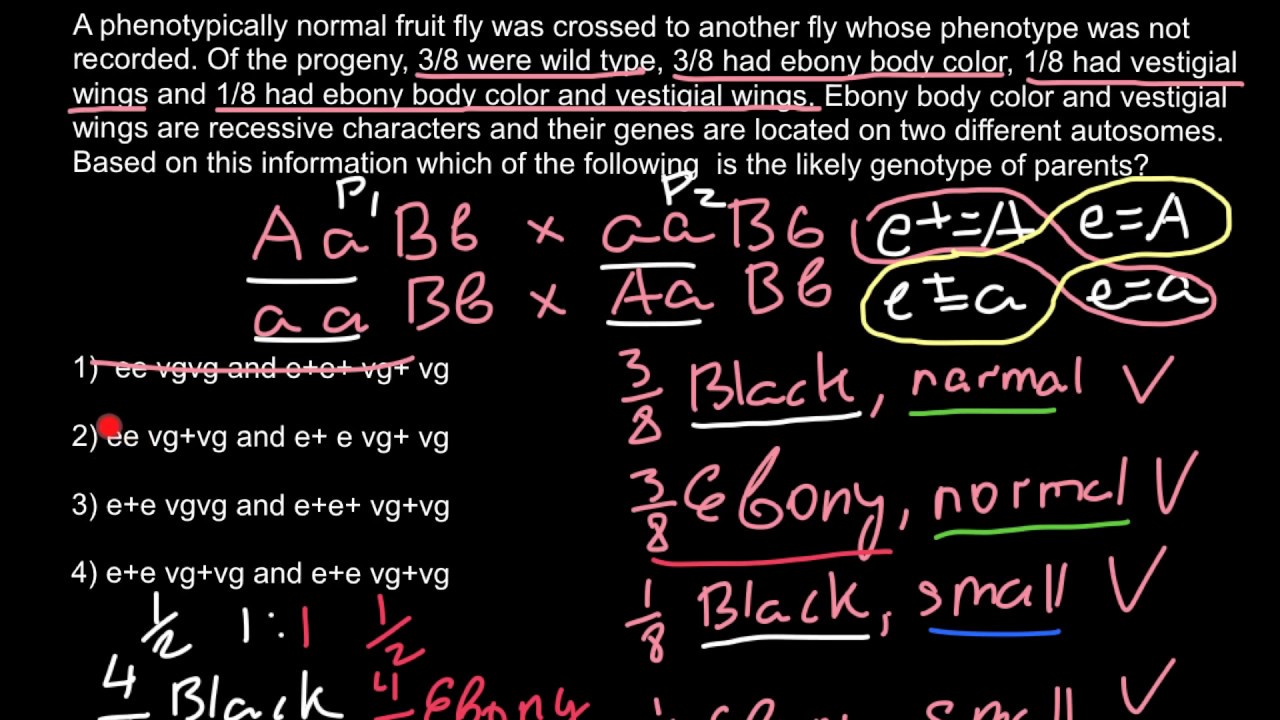 A phenotypically normal fruit fly was crossed to another fly whose phenotype was not
recorded. Of the progeny, 3/8 were wild type, 3/8 had ebony body color, 1/8 had vestigial
wings and 1/8 had ebony body color and vestigial wings. Ebony body color and vestigial
wings are recessive characters and their genes are located on two different autosomes.
Based on this information which of the following is the likely genotype of parents?
P1 P2
Aa Bb x aa Bb e+=A e=A
aa Bb x Aa Bb e+=a e=a
1) ee vgvg and e+e+ vg+ vg
3/8 Black, narmal V
2) ee vg+vg and e+ e vg+ vg
3/8 Ebony, normal V
3) e+e vgvg and e+e+ vg+vg
4) e+e vg+vg and e+e vg+vg
1/8 Black, small V
1/2 1:1 1/2
4 Black 4 Ebony